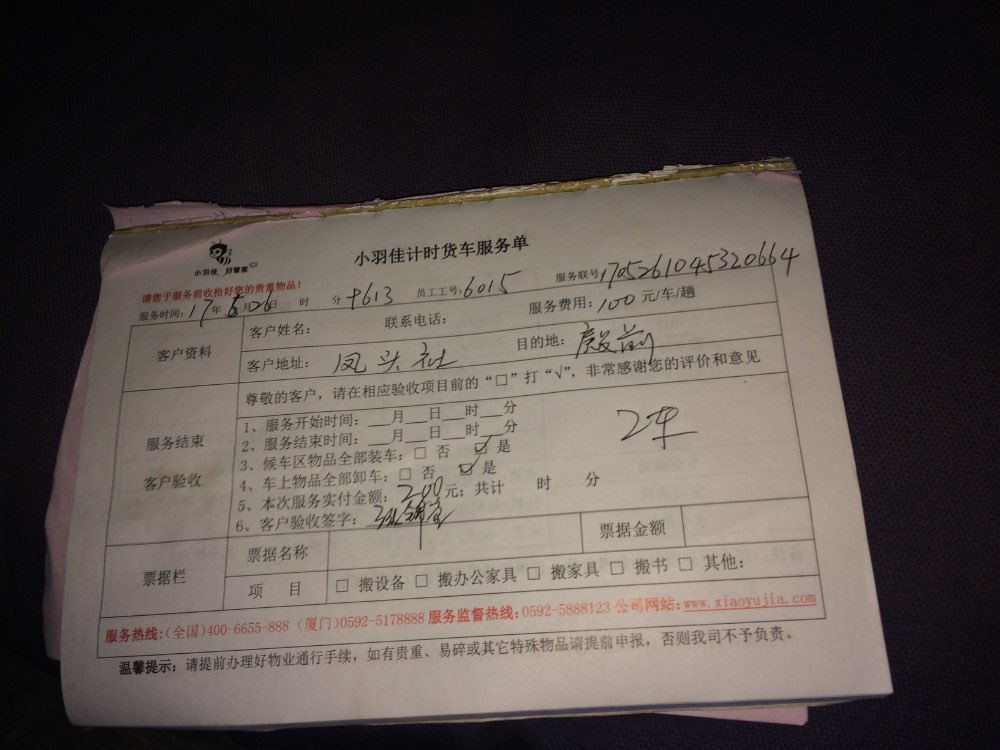 小羽佳 好管家
小羽佳计时货车服务单
请您于服务前收拾好您的贵重物品!
服务时间: 17年5月26日 时 分 员工工号: 6015 服务联号 1705261045320664
客户资料
客户姓名: 联系电话: 服务费用: 100 元/车/趟
客户地址: 凤头社 目的地: 殿前
服务结束
客户验收
尊敬的客户,请在相应验收项目前的“□”打“√”,非常感谢您的评价和意见
1、服务开始时间: ___月___日___时___分
2、服务结束时间: ___月___日___时___分
3、候车区物品全部装车: □ 否 ☑ 是
4、车上物品全部卸车: □ 否 ☑ 是
5、本次服务实付金额: 200元; 共计 时 分
6、客户验收签字:
2车
票据栏
票据名称 票据金额
项 目 □ 搬设备 □ 搬办公家具 □ 搬家具 □ 搬书 □ 其他:
服务热线:(全国)400-6655-888 (厦门)0592-5178888 服务监督热线:0592-5888123 公司网站:www.xiaoyujia.com
温馨提示: 请提前办理好物业通行手续,如有贵重、易碎或其它特殊物品请提前申报,否则我司不予负责。